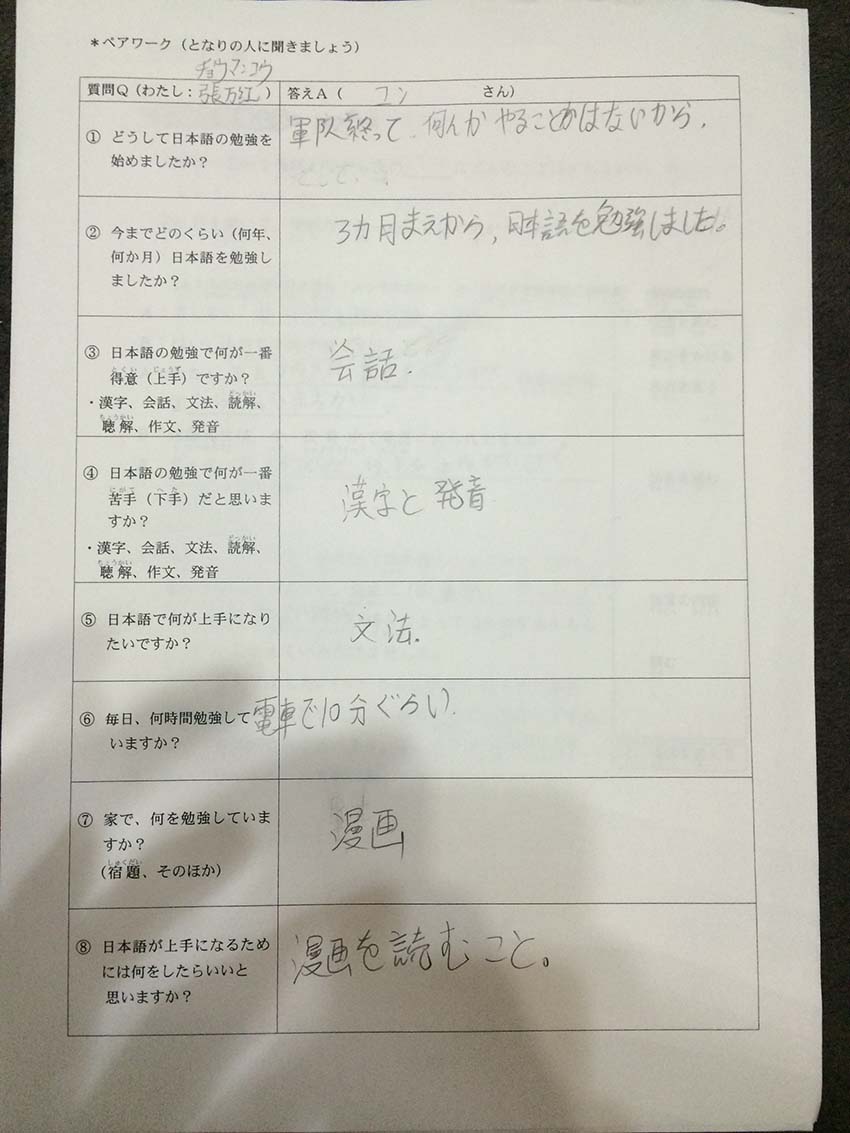 ＊ペアワーク（となりの人に聞きましょう）
チョウマンコウ
質問Q（わたし：張万红）
答えA（ ユン さん）
① どうして日本語の勉強を
始めましたか？
軍队終って、何んか やることがはないから、
② 今までどのくらい（何年、
何か月）日本語を勉強し
ましたか？
3カ月まえから，日本語を勉強しました。
③ 日本語の勉強で何が一番
得意（上手）ですか？
・漢字、会話、文法、読解、
聴解、作文、発音
会話．
④ 日本語の勉強で何が一番
苦手（下手）だと思いま
すか？
・漢字、会話、文法、読解、
聴解、作文、発音
漢字と発音
⑤ 日本語で何が上手になり
たいですか？
文法．
⑥ 毎日、何時間勉強して
いますか？
電車で10分ぐらい．
⑦ 家で、何を勉強していま
すか？
（宿題、そのほか）
漫画
⑧ 日本語が上手になるため
には何をしたらいいと
思いますか？
漫画を読むこと。